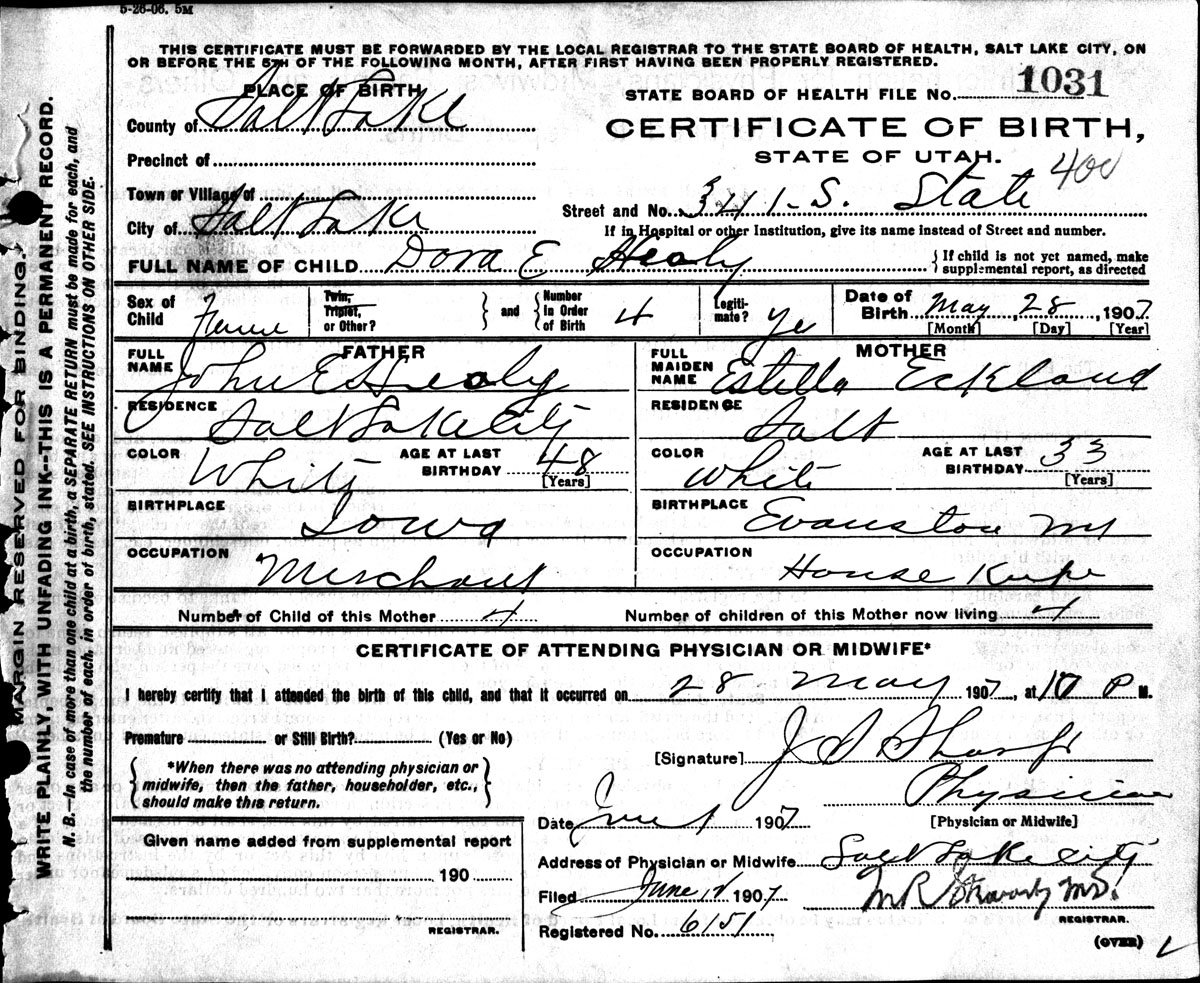 5-26-06. 5M
THIS CERTIFICATE MUST BE FORWARDED BY THE LOCAL REGISTRAR TO THE STATE BOARD OF HEALTH, SALT LAKE CITY, ON
OR BEFORE THE 5TH OF THE FOLLOWING MONTH, AFTER FIRST HAVING BEEN PROPERLY REGISTERED.
PLACE OF BIRTH
STATE BOARD OF HEALTH FILE No. 1031
County of Salt Lake
CERTIFICATE OF BIRTH,
STATE OF UTAH.
400
Precinct of
Town or Village of
Street and No. 341-S. State
City of Salt Lake
If in Hospital or other Institution, give its name instead of Street and number.
FULL NAME OF CHILD Dora E Healy
{If child is not yet named, make
supplemental report, as directed
Sex of Child Twin, Triplet, or Other? } and { Number in Order of Birth 4 Legiti-mate? Ye Date of Birth May, 28, 1907
[Month] [Day] [Year]
FATHER
FULL NAME John E Healy
RESIDENCE Salt Lake City
COLOR White AGE AT LAST BIRTHDAY 48
[Years]
BIRTHPLACE Iowa
OCCUPATION Merchant
MOTHER
FULL MAIDEN NAME Estella Eckland
RESIDENCE Salt
COLOR White AGE AT LAST BIRTHDAY 33
[Years]
BIRTHPLACE Evanston
OCCUPATION House
Number of Child of this Mother 4 Number of children of this Mother now living 4
CERTIFICATE OF ATTENDING PHYSICIAN OR MIDWIFE*
I hereby certify that I attended the birth of this child, and that it occurred on 28 May 1907, at 10 P M.
Premature or Still Birth? (Yes or No)
[Signature] J S Sharp
*When there was no attending physician or
midwife, then the father, householder, etc.,
should make this return.
Physician
[Physician or Midwife]
Date June 1 1907
Given name added from supplemental report
190
REGISTRAR.
Address of Physician or Midwife Salt Lake City
Filed June 1907
REGISTRAR.
Registered No. 6151
(OVER)
MARGIN RESERVED FOR BINDING.
WRITE PLAINLY WITH UNFADING INK--THIS IS A PERMANENT RECORD.
N. B.—In case of more than one child at a birth, a SEPARATE RETURN must be made for each, and
the number of each, in order of birth, stated. SEE INSTRUCTIONS ON OTHER SIDE.